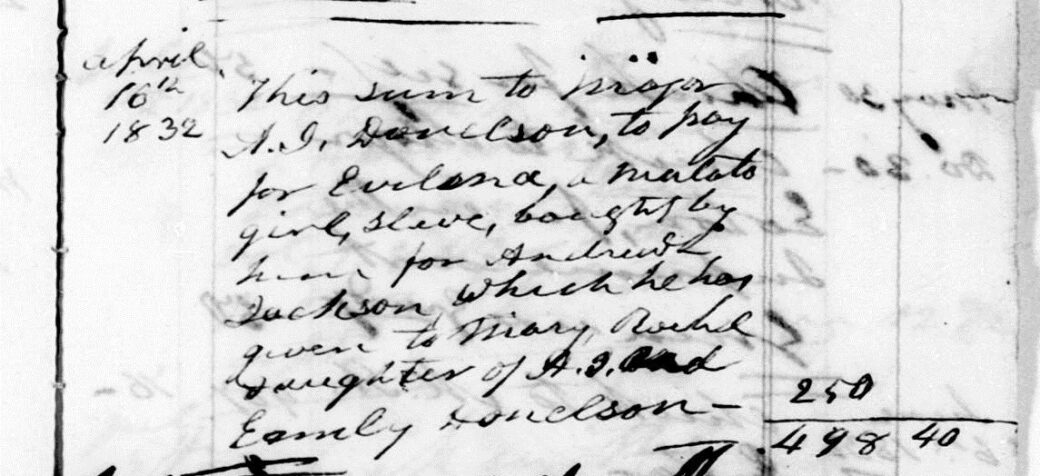 April
16th
1832
This sum to major
A. J. Donelson, to pay
for Evelena, a mulato
girl, slave, bought by
him for Andrew
Jackson, which he has
given to Mary Rachel
daughter of A. J. and
Emily Donelson— 250
498 40